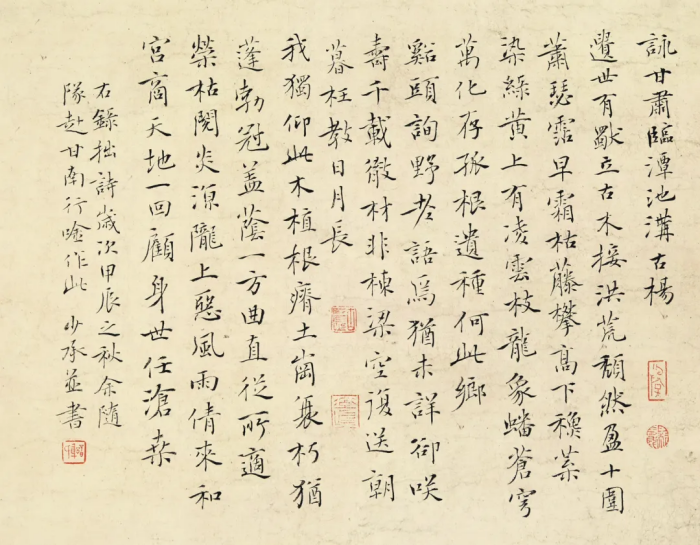 詠甘肅臨潭池溝古楊
遺世有立古木接洪荒頹然盈十圍
蕭瑟霑早霜枯藤攀高下穠葉
染綠黃上有凌雲枝龍象蟠蒼穹
萬化存孤根遺種何此鄉
谿頭詢野老語焉猶未詳卻咲
壽千載材非棟梁空復送朝
暮枉教日月長
我獨仰此木植根瘠土崗衰朽猶
蓬勃冠蓋蔭一方曲直從所適
榮枯閱炎涼隴上惡風雨倩來和
宮商天地一回顧身世任滄桑
右錄拙詩歲次甲辰之秋余隨
隊赴甘南行唫作此 少承並書